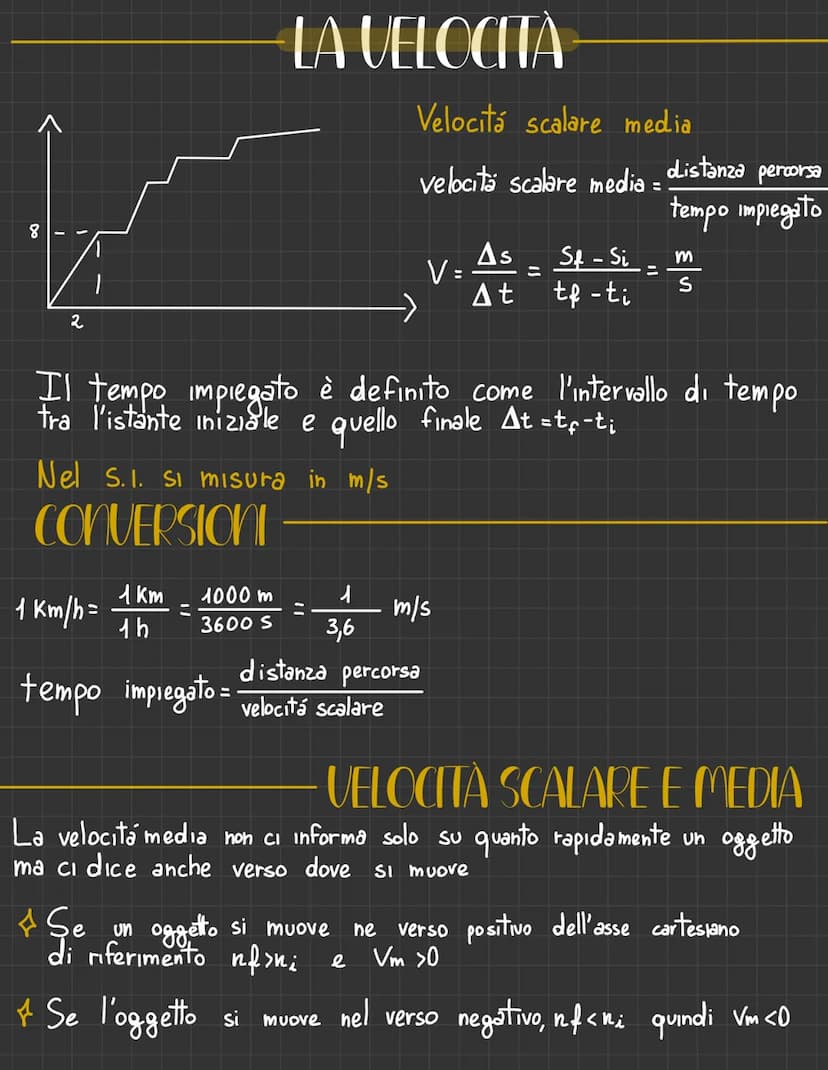 LA VELOCITÀ
Velocitá scalare media
velocitá scalare media = distanza percorsa / tempo impiegato
8
V = Δs / Δt = Sf - Si / tf - ti = m / s
2
Il tempo impiegato è definito come l'intervallo di tempo
tra l'istante iniziale e quello finale Δt = tf - ti
Nel S.I. si misura in m/s
CONVERSIONI
1 Km/h = 1 Km / 1 h = 1000 m / 3600 s = 1 / 3,6 m/s
tempo impiegato = distanza percorsa / velocitá scalare
VELOCITÀ SCALARE E MEDIA
La velocitá media non ci informa solo su quanto rapidamente un oggetto
ma ci dice anche verso dove si muove
Se un oggetto si muove ne verso positivo dell'asse cartesiano
di riferimento nf > ni e Vm > 0
Se l'oggetto si muove nel verso negativo, nf < ni quindi Vm < 0